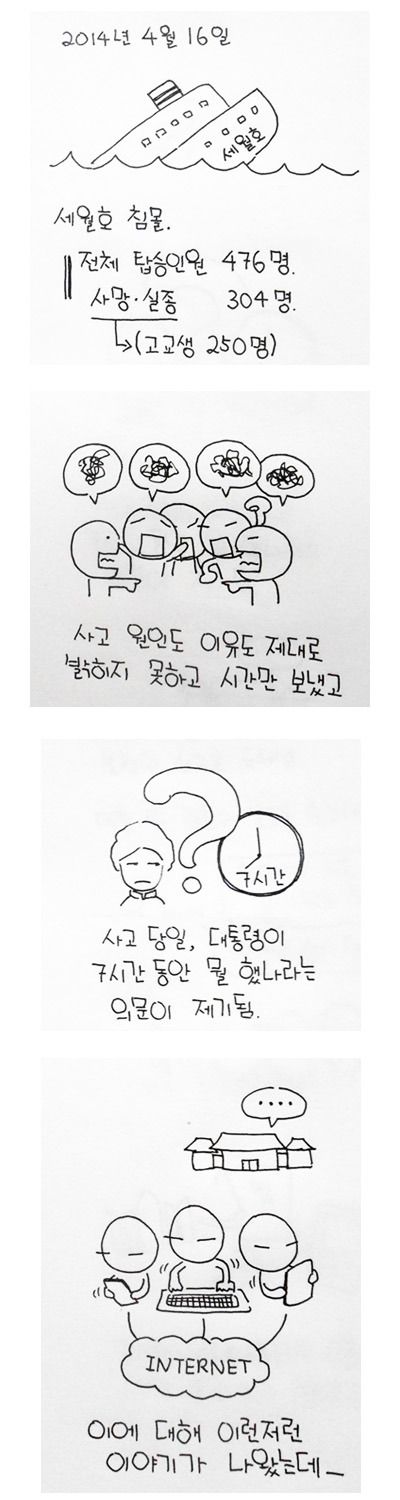 2014년 4월 16일
세월호
세월호 침몰.
전체 탑승인원 476명.
사망·실종 304명.
(고교생 250명)
사고 원인도 이유도 제대로
밝히지 못하고 시간만 보냈고
?
7시간
사고 당일, 대통령이
7시간 동안 뭘 했나라는
의문이 제기됨.
....
INTERNET
이에 대해 이런저런
이야기가 나왔는데_